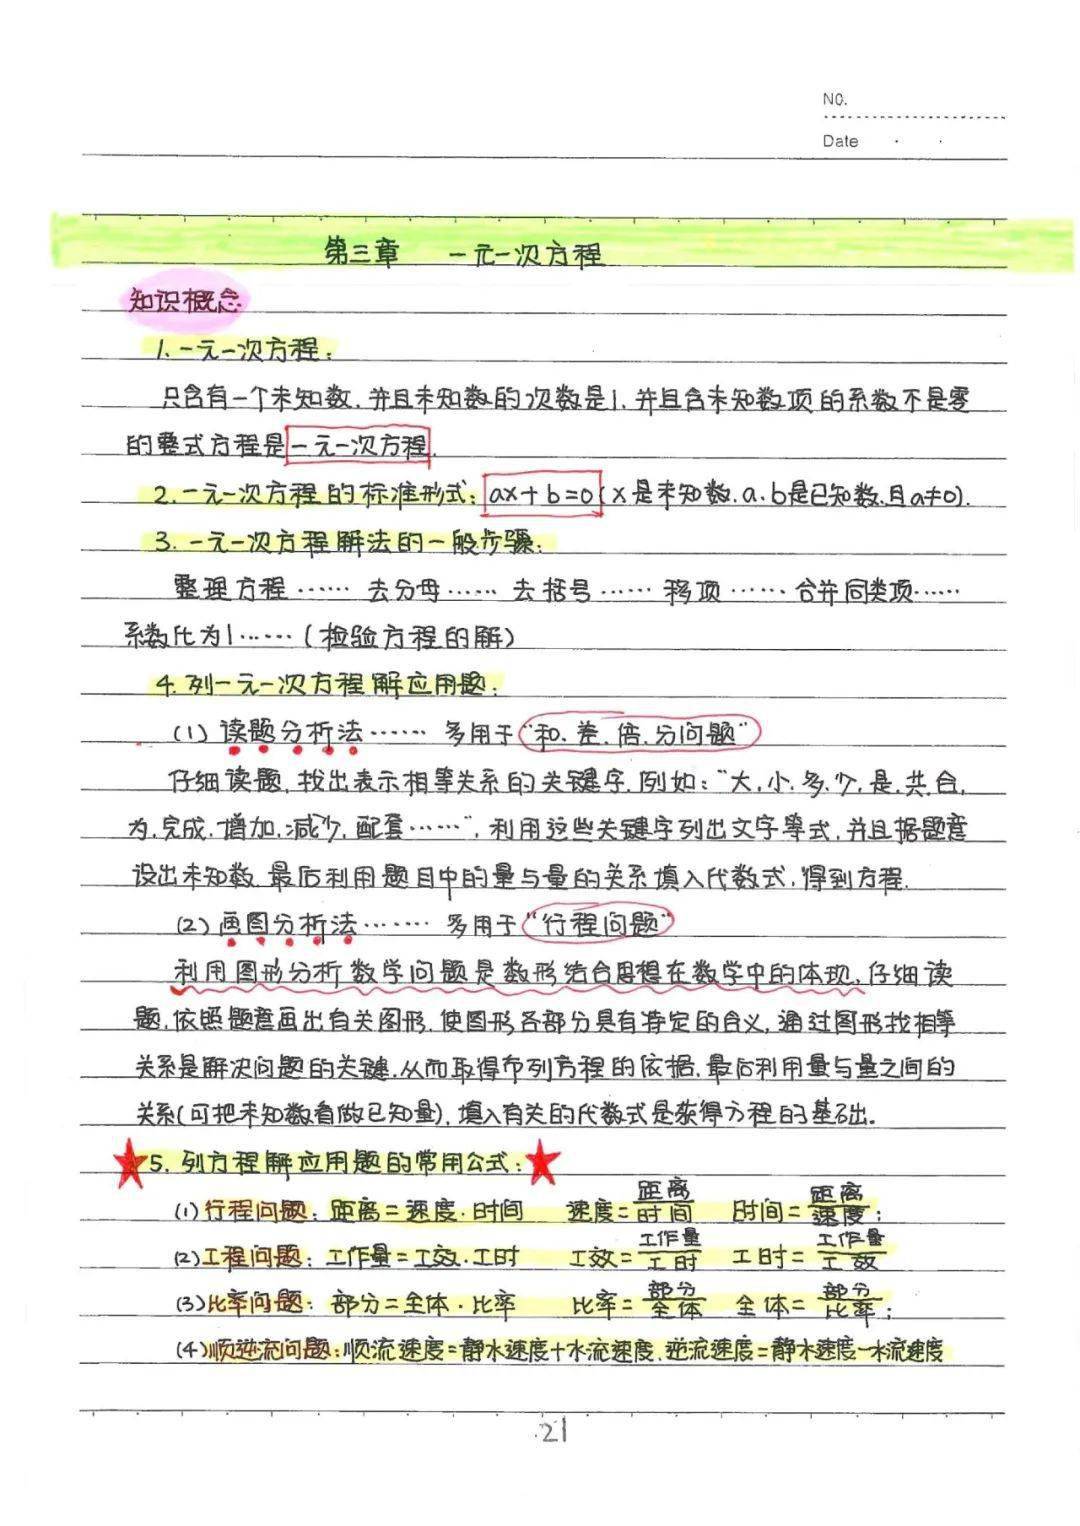 NO.
Date
第三章 一元一次方程
知识概念
1.一元一次方程:
只含有一个未知数,并且未知数的次数是1,并且含未知数项的系数不是零
的整式方程是一元一次方程.
2.一元一次方程的标准形式: ax+b=0(x是未知数,a、b是已知数,且a≠0).
3.一元一次方程解法的一般步骤:
整理方程…… 去分母…… 去括号…… 移项…… 合并同类项……
系数化为1……(检验方程的解)
4.列一元一次方程解应用题:
(1)读题分析法…… 多用于“和、差、倍、分问题”
仔细读题,找出表示相等关系的关键字,例如:“大,小,多,少,是,共,合,
为,完成,增加,减少,配套……”,利用这些关键字列出文字等式,并且据题意
设出未知数,最后利用题目中的量与量的关系填入代数式,得到方程.
(2)画图分析法…… 多用于“行程问题”
利用图形分析数学问题是数形结合思想在数学中的体现,仔细读
题,依照题意画出有关图形,使图形各部分具有特定的含义,通过图形找相等
关系是解决问题的关键,从而取得布列方程的依据,最后利用量与量之间的
关系(可把未知数看做已知量),填入有关的代数式是获得方程的基础.
5.列方程解应用题的常用公式:
(1)行程问题:距离=速度·时间 速度=距离/时间 时间=距离/速度;
(2)工程问题:工作量=工效·工时 工效=工作量/工时 工时=工作量/工效
(3)比率问题:部分=全体·比率 比率=部分/全体 全体=部分/比率;
(4)顺逆流问题:顺流速度=静水速度+水流速度,逆流速度=静水速度-水流速度
21